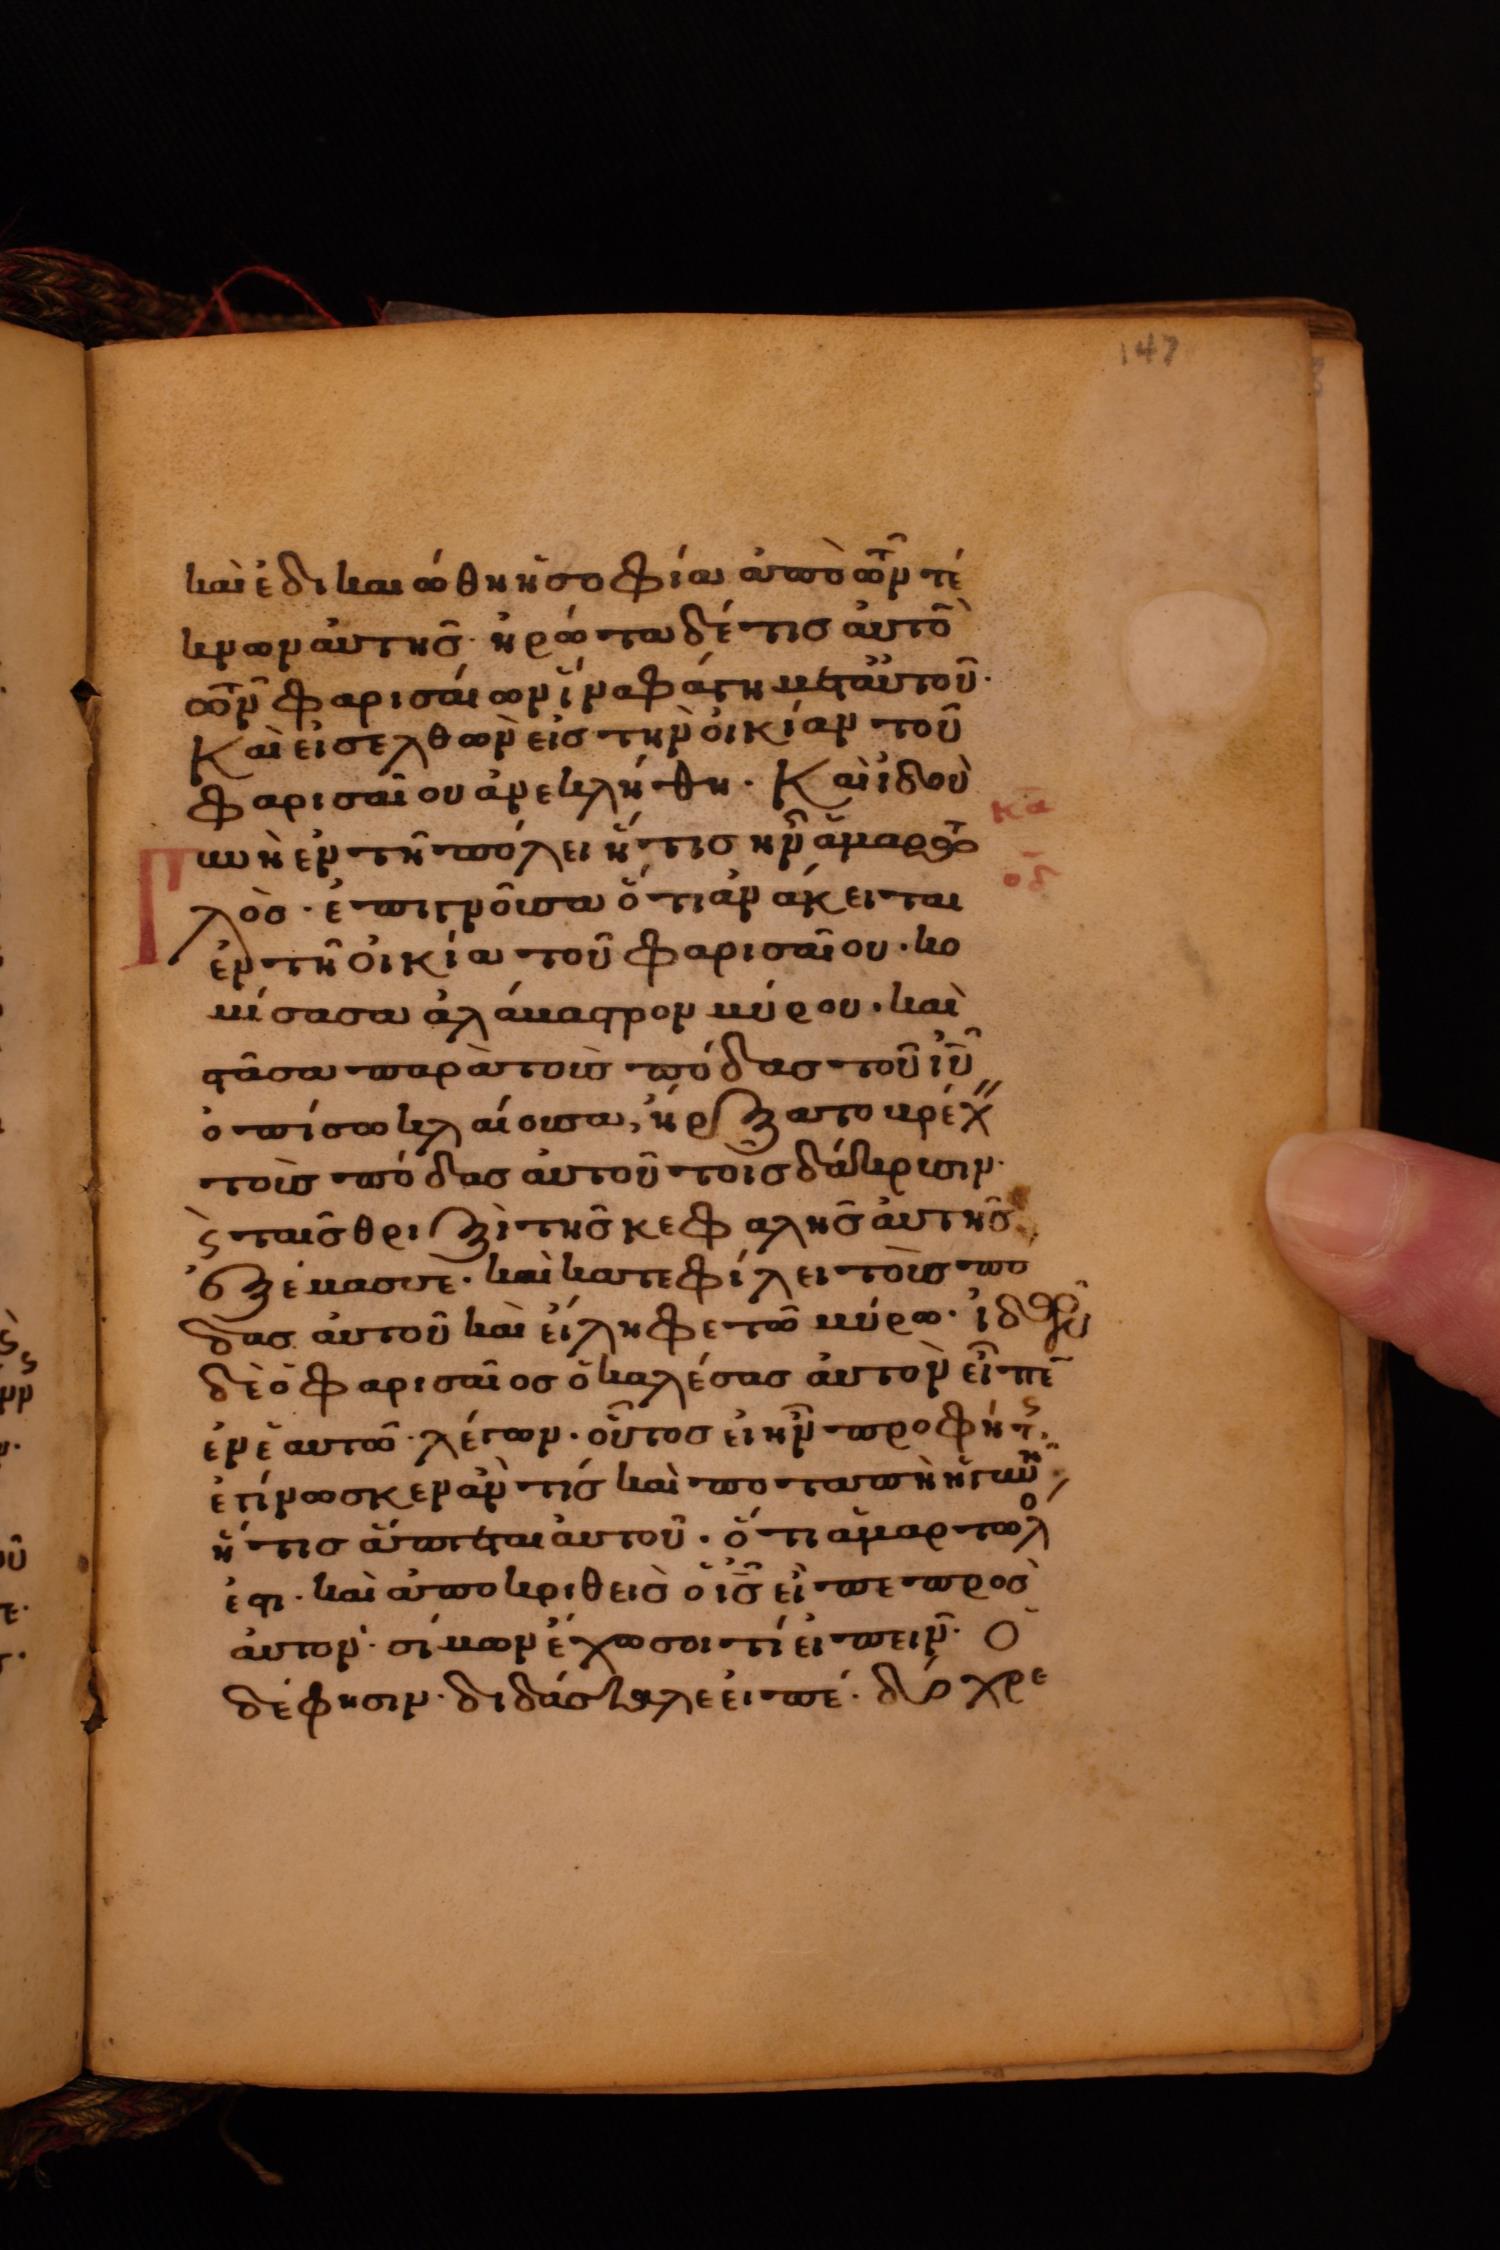 147
καὶ ἐδικαιώθη ἡ σοφία ἀπὸ τῶν τέ
κνων αὐτῆς· ἠρώτα δέ τις αὐτὸ
τῶν φαρισαίων ἵνα φάγη μετ αὐτοῦ·
Καὶ εἰσελθὼν εἰς τὴν οἰκίαν τοῦ
φαρισαίου ἀνεκλήθη· Καὶ ἰδοὺ
Γυνὴ ἐν τῆ πόλει ἥτις ἦν ἁμαρτω
λὸς· ἐπιγνοῦσα ὅτι ἀνάκειται
ἐν τῆ οἰκία τοῦ φαρισαίου· κο
μίσασα ἀλάμαστρον μύρου· καὶ
στᾶσα παρὰ τοὺς πόδας τοῦ ἰῦ
ὀπίσω κλαίουσα, ἤρξατο βρέχ
τοὺς πόδας αὐτοῦ τοῖς δάκρυσιν·
ϛ ταῖς θριξὶ τῆς κεφαλῆς αὐτῆς
ἐξέμασσε· καὶ κατεφίλει τοὺς πό
δας αὐτοῦ καὶ εἴληφε τῶ μύρω· ἰδὼν
δὲ ὁ φαρισαῖος ὁ καλέσας αὐτὸν εἶπε
ἐν ἑαυτῶ· λέγων· οὗτος εἰ ἦν προφήτης,
ἐγίνωσκεν ἂν τίς καὶ ποταπὴ ἡ γυνὴ
ἥτις ἅπτεται αὐτοῦ· ὅτι ἁμαρτωλό
ἐστι· καὶ ἀποκριθεὶς ὁ ις εἶπε πρὸς
αὐτον· σίμων ἔχω σοι τί εἰπεῖν· Ὁ
δέ φησιν· διδάσκαλε εἰπέ· δύο χρε
κα
οδ